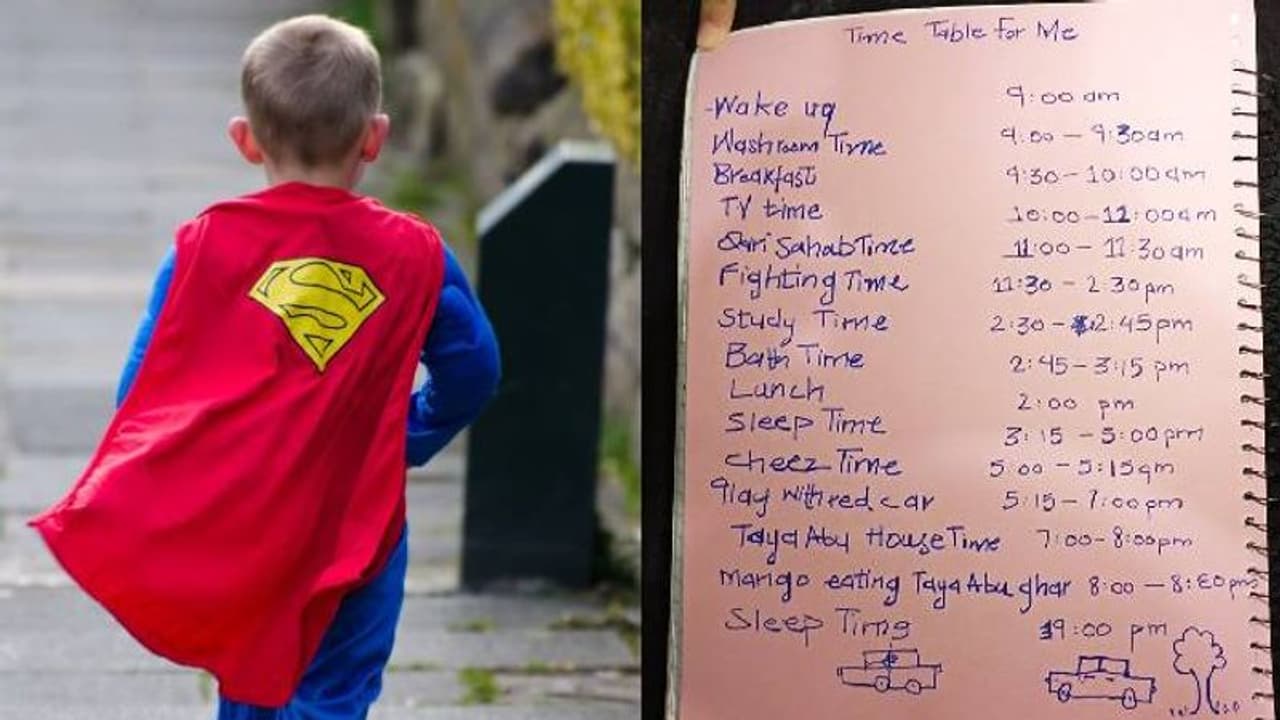 S
Time Table For Me
Wake up 9:00 am
Washroom Time 9:00 – 9:30am
Breakfast 9:30 – 10:00am
TV time 10:00 – 11:00am
Qari Sahab Time 11:00 – 11:30am
Fighting Time 11:30 – 2 30pm
Study Time 2:30 – 2:45pm
Bath Time 2:45 – 3:15 pm
Lunch 2:00 pm
Sleep Time 3:15 – 5:00pm
Cheez Time 5:00 – 5:15pm
Play with red car 5:15 – 7:00pm
Taya Abu House Time 7:00 – 8:00pm
Mango eating Taya Abu ghar 8:00 –
Sleep Time 9:00 pm